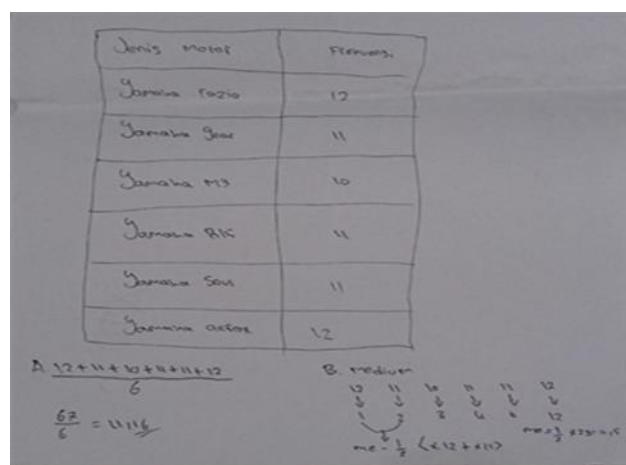 Jenis Motor Frekuensi
Yamaha Fazio 12
Yamaha gear 11
Yamaha M3 10
Yamaha RK 11
Yamaha Soul 11
Yamaha 12
A. 12+11+10+11+11+12
6
67
6 = 11,16
B. medium
12 11 10 11 11 12
1 2 3 4 12
me = 1/2 (x12 + x11)
me = 1/2